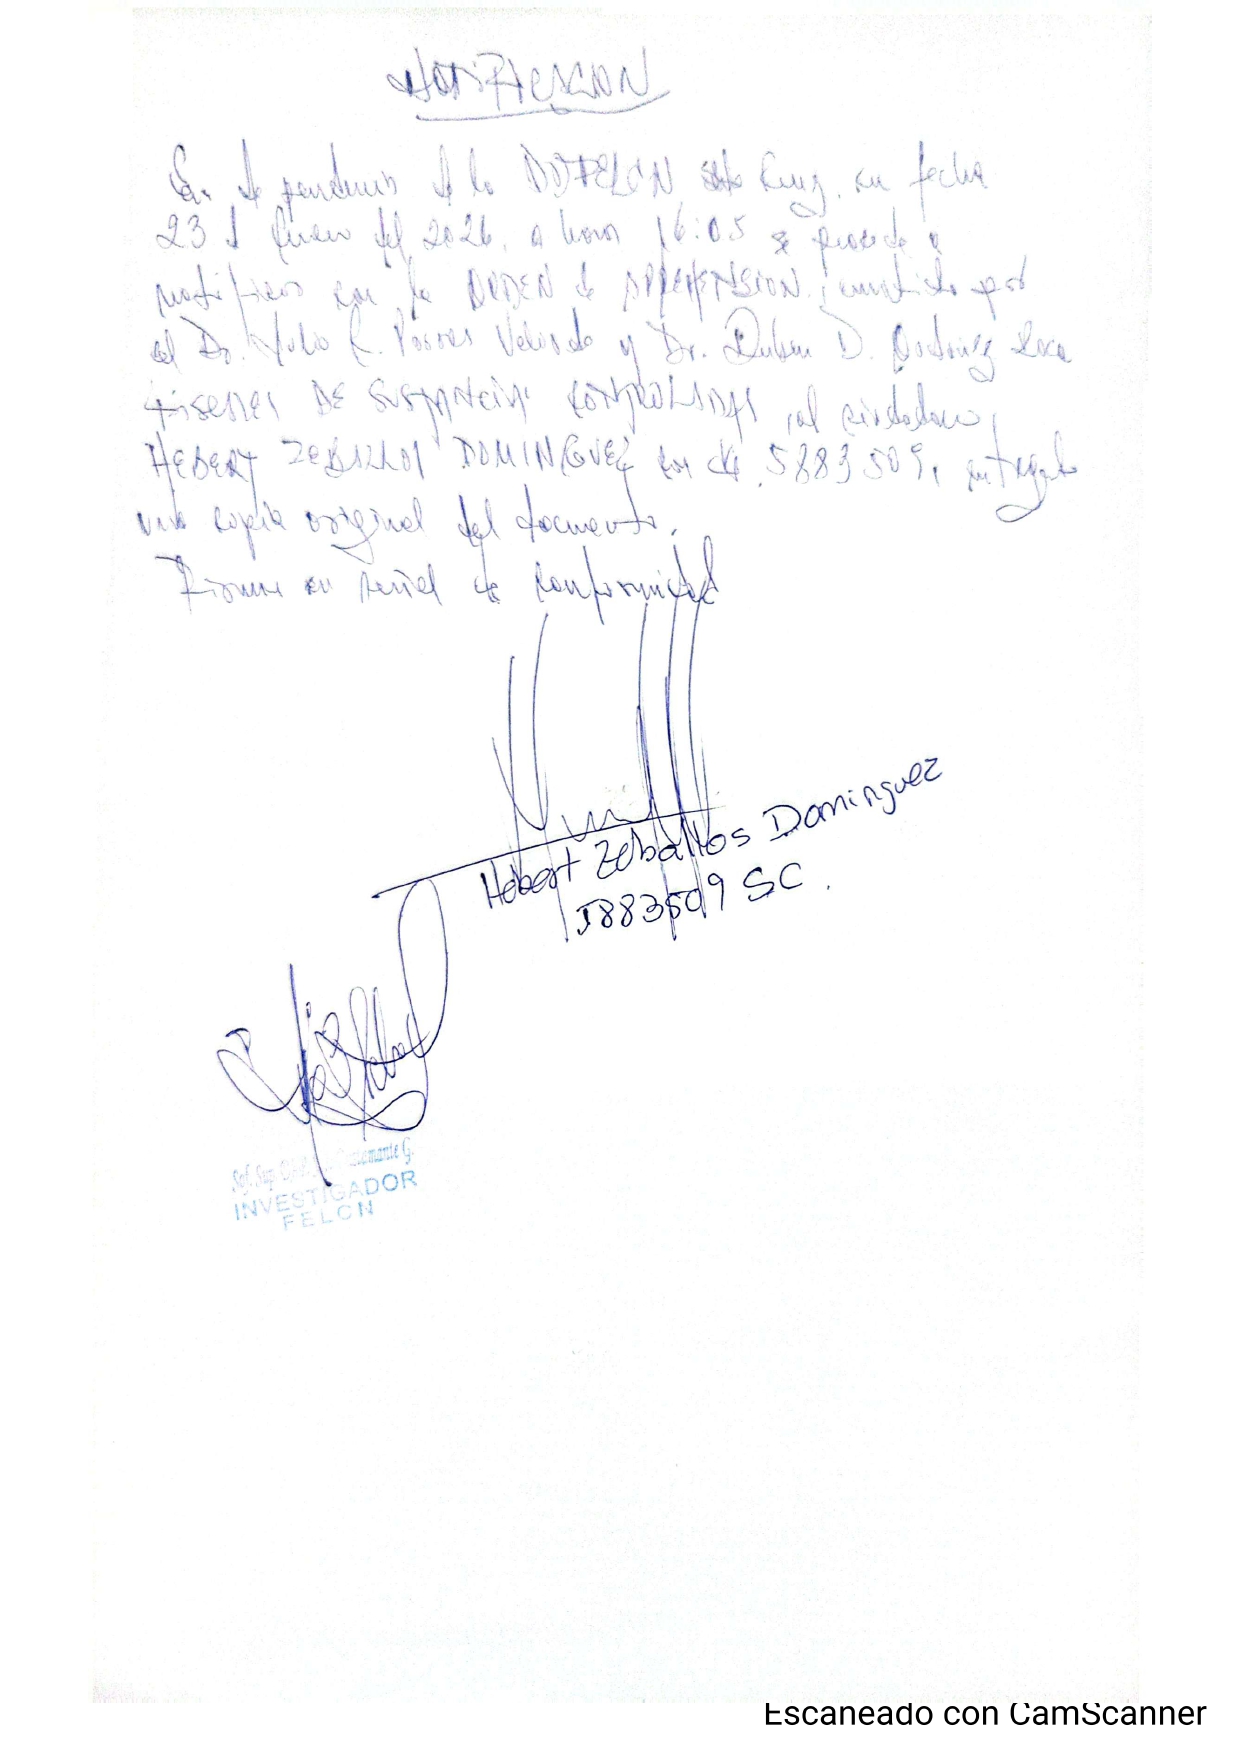 NOTIFICACION
En dependencias de la DDFELCN Santa Cruz, en fecha
23 de Enero del 2026, a horas 16:05 se procede a
notificar con la ORDEN de APREHENSION, emitido por
el Dr. Julio C. Porras Velarde y Dr. Ruben D.
FISCALES DE SUSTANCIAS CONTROLADAS, al ciudadano,
HEBERT ZEBALLOS DOMINGUEZ con CI. 5883509, entregado
una copia original del documento.
Firma en señal de conformidad
Hebert Zeballos Dominguez
5883509 SC.
Sof. Sup.
INVESTIGADOR
FELCN
Escaneado con CamScanner